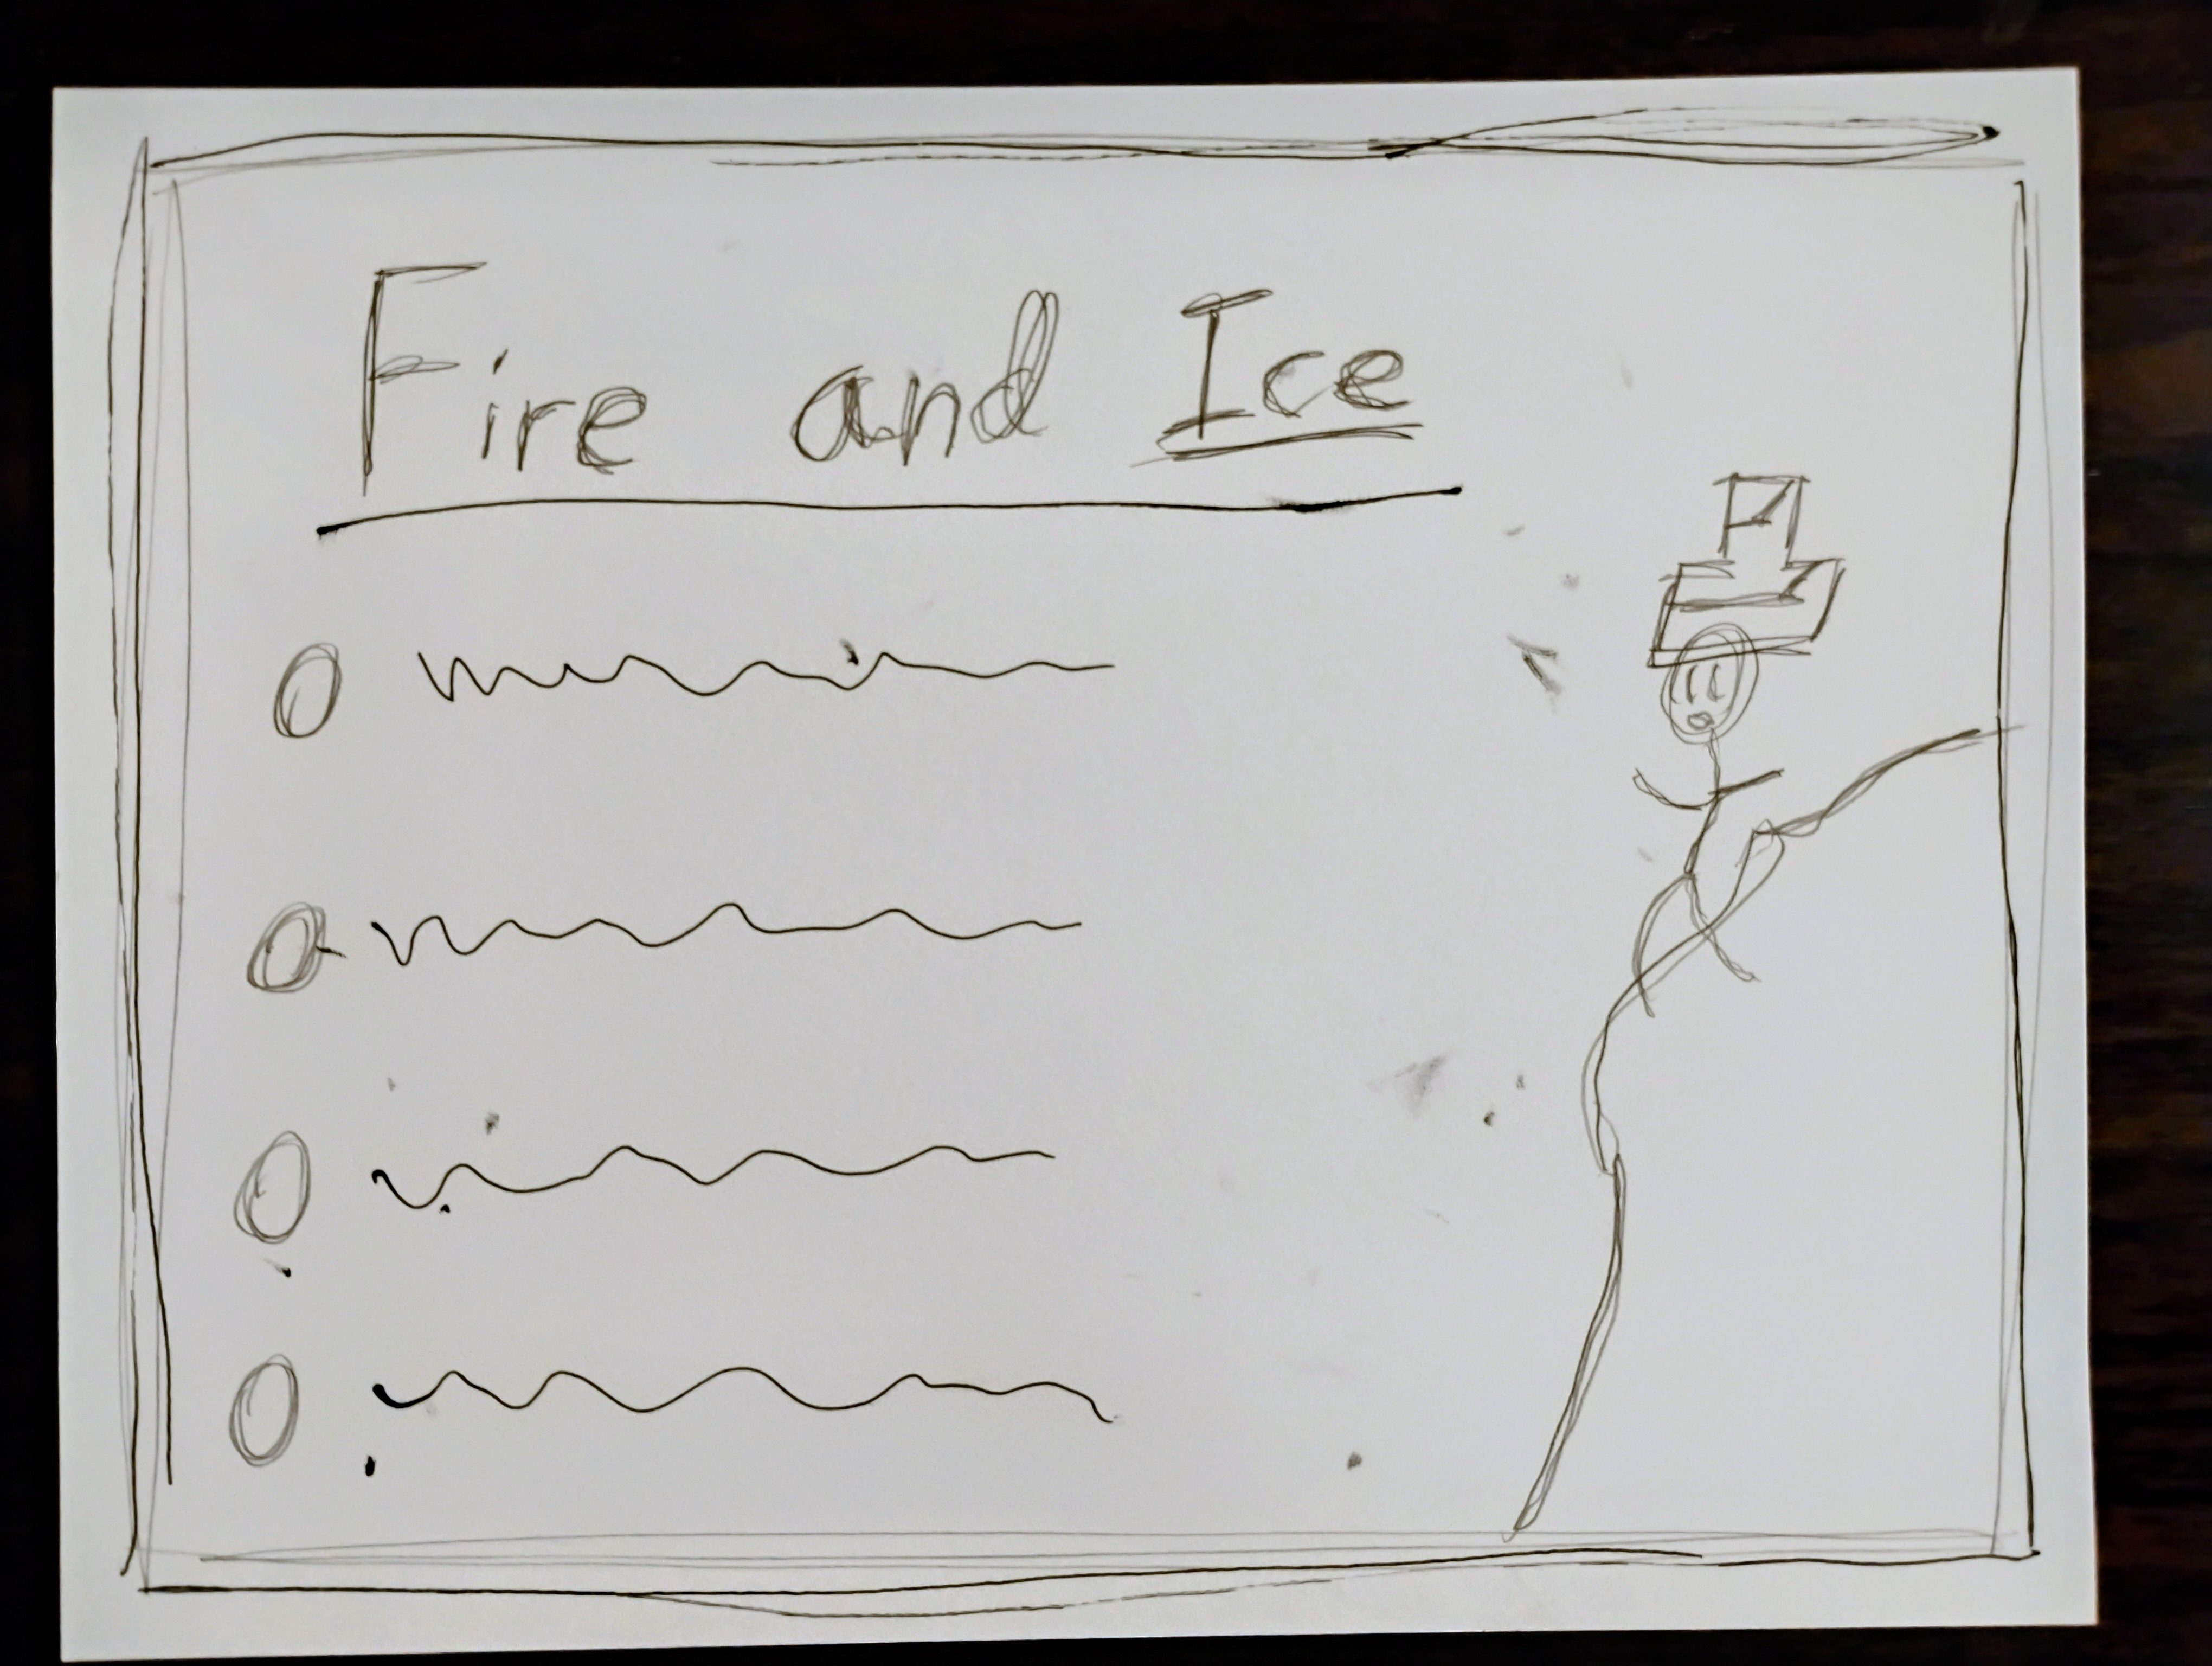 Fire and Ice